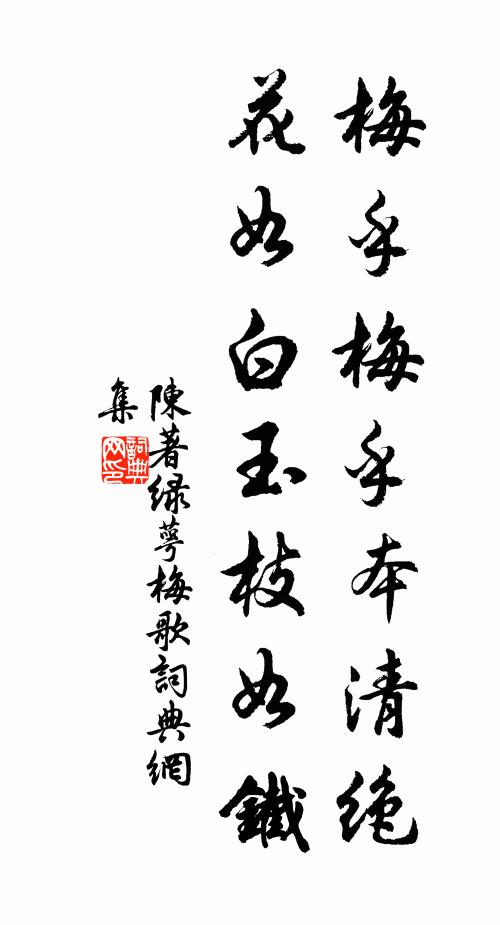 梅乎梅乎本清絶
花如白玉枝如鐵
陳著緑萼梅歌詞典網
集
詞典網印